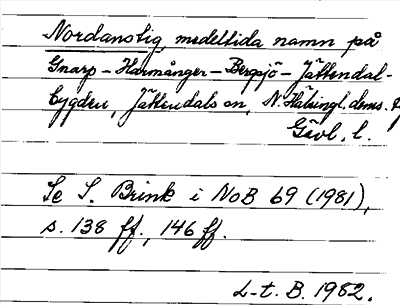 Nordanstig, medeltida namn på
Gnarp – Harmånger – Bergsjö – Jättendal-
bygden, Jättendals sn, N. Hälsingl. doms.
Gävl. l.
Se S. Brink i NoB 69 (1981),
s. 138 ff., 146 ff.
L-t. B. 1982.